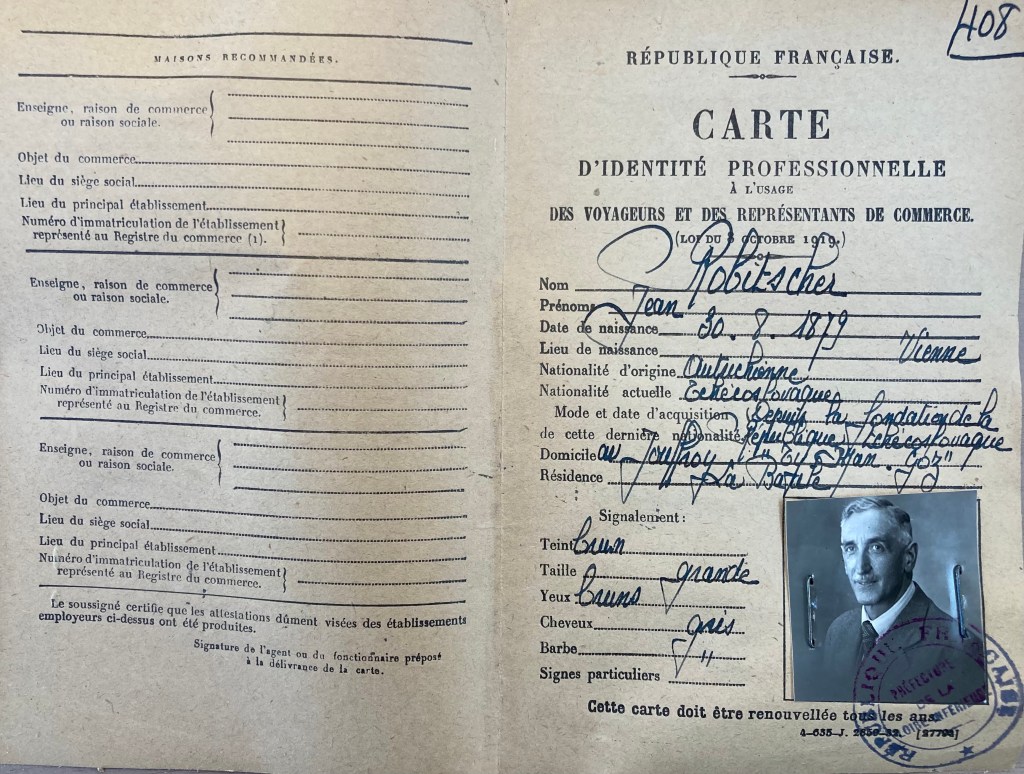 MAISONS RECOMMANDÉES.
Enseigne, raison de commerce
ou raison sociale.
Objet du commerce
Lieu du siège social
Lieu du principal établissement
Numéro d'immatriculation de l'établissement
représenté au Registre du commerce (1).
Enseigne, raison de commerce
ou raison sociale.
Objet du commerce
Lieu du siège social
Lieu du principal établissement
Numéro d'immatriculation de l'établissement
représenté au Registre du commerce.
Enseigne, raison de commerce
ou raison sociale.
Objet du commerce
Lieu du siège social
Lieu du principal établissement
Numéro d'immatriculation de l'établissement
représenté au Registre du commerce.
Le soussigné certifie que les attestations dûment visées des établissements
employeurs ci-dessus ont été produites.
Signature de l'agent ou du fonctionnaire préposé
à la délivrance de la carte.
408
RÉPUBLIQUE FRANÇAISE.
CARTE
D'IDENTITÉ PROFESSIONNELLE
À L'USAGE
DES VOYAGEURS ET DES REPRÉSENTANTS DE COMMERCE.
(LOI DU 8 OCTOBRE 1919.)
Nom Robitscher
Prénoms Jean
Date de naissance 30. 8. 1879
Lieu de naissance Vienne
Nationalité d'origine Autrichienne
Nationalité actuelle Tchécoslovaque
Mode et date d'acquisition Depuis la fondation de la
de cette dernière nationalité République Tchécoslovaque
Domicile "Ty
Résidence La Baule
Signalement :
Teint brun
Taille grande
Yeux bruns
Cheveux gris
Barbe "
Signes particuliers
Cette carte doit être renouvellée tous les ans.
4-635-J. 2650-32. [27793]
RÉPUBLIQUE FRANÇAISE
PRÉFECTURE
DE LA
LOIRE-INFÉRIEURE